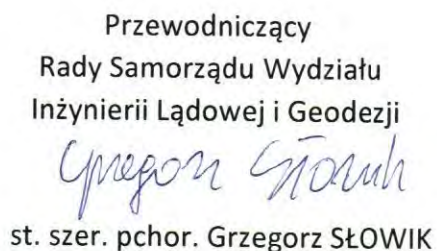 Przewodniczący
Rady Samorządu Wydziału
Inżynierii Lądowej i Geodezji
Grzegorz Słowik
st. szer. pchor. Grzegorz SŁOWIK